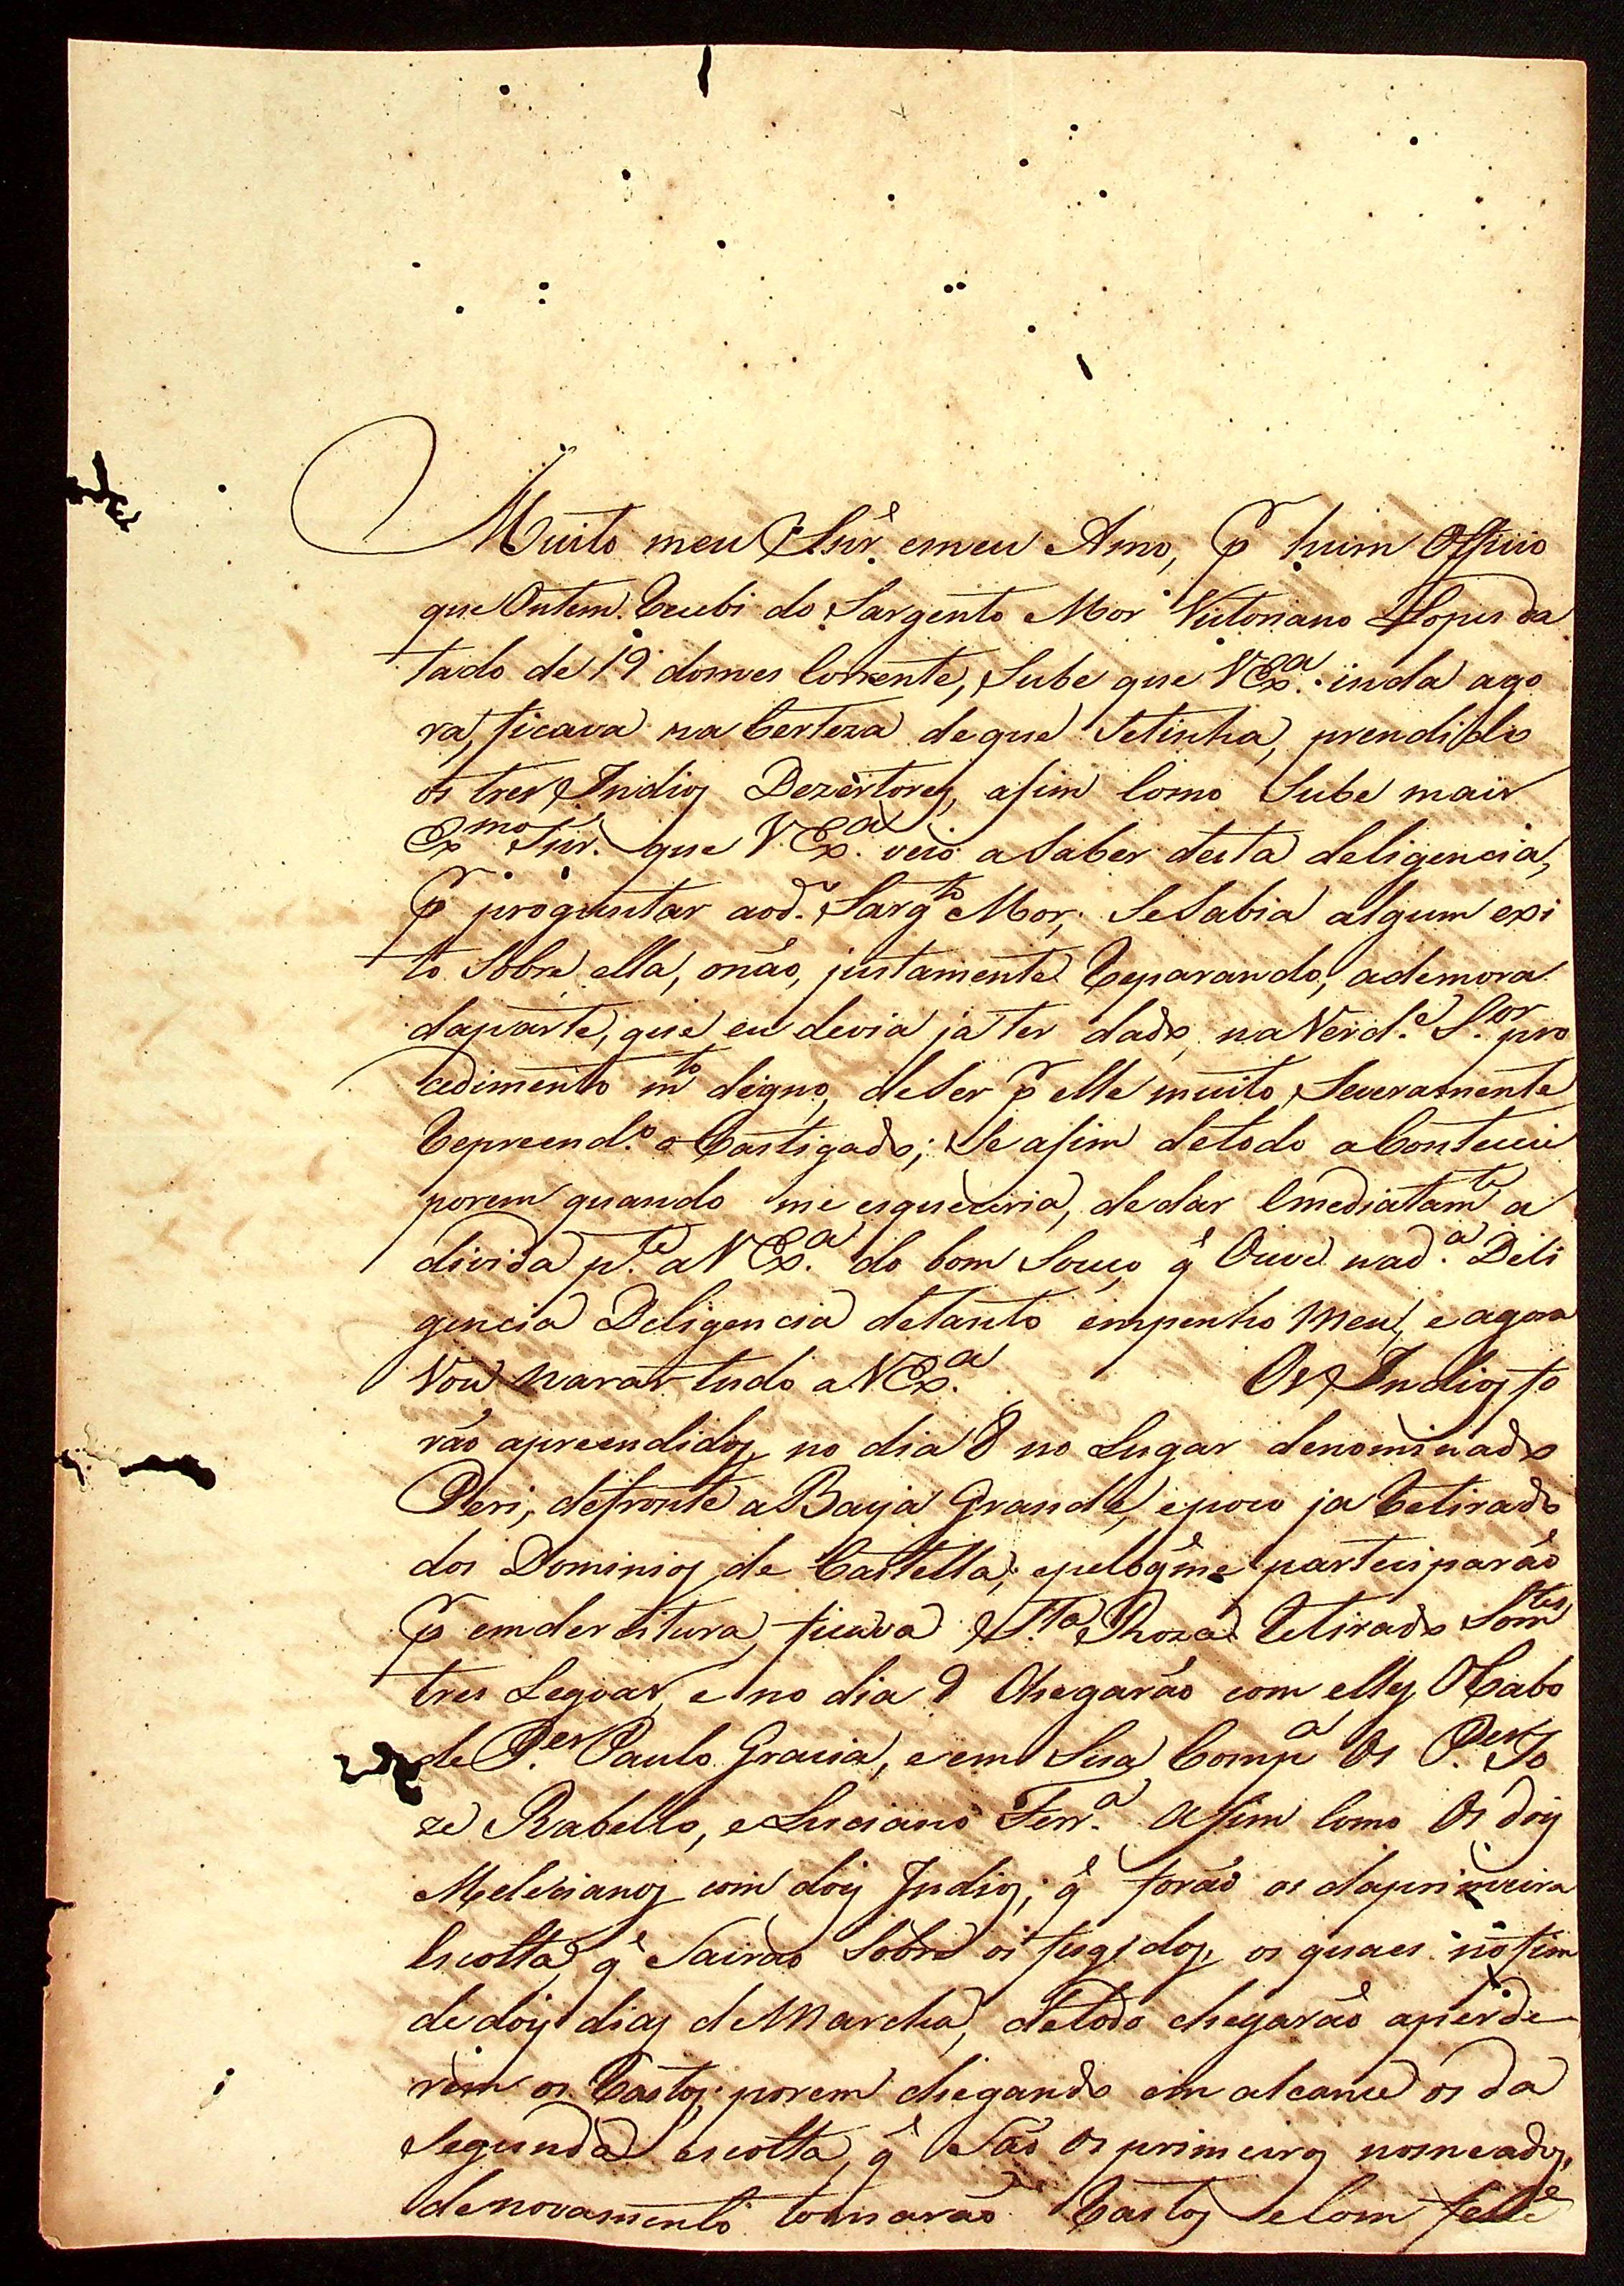 Muito meu Snr̃. e meu Amo, p̃ huim Officio
que Ontem Recebi do Sargento Mor Victoriano Lopes da
tado de 19 domes Corrente, Sube que VExª. inda ago
ra, ficava na Certeza de que Setinha, prendido
os tres Indios Dezertores, asim Como Sube mais
Exmo Snr. que V.Exª. veio a Saber desta deligencia,
p̃ proguntar aod. Sargto Mor, Se Sabia algum exi
to Sobre ella, onão, justamente Reparando, ademora
daparte, que eu devia ja ter dado, na Verd.e S.or pro
cedimento mto digno, de Ser p̃ elle muito Severamente
Repreend.o e Castigado; Se asim detodo aContecei
porem quando me esqueceria, de dar Emediatamte a
divida p.te a VExª. do bom Souço q̃ Ouve nad.a Deli
gencia Deligencia detanto empenho Meu, e agora
Vou Narar tudo a VExª. Os Indios fo
rão apreendidos, no dia 8 no Lugar denominado
Peri, defronte a Baya Grande, epoco ja Retirado
dos Dominios de Castella, epeloq̃me parteciparão
p̃ emdereitura, ficava Sta Roza Retirado Somte
tres Legoas, e no dia 9 Chegarão com elles, O Cabo
de P.es Paulo Gracia, e em Sua Compª Os P.es Jo
ze Rabello, e Luciano Ferr.ª Asim Como Os dois
Melecianos com dois Indios, q̃ forão os daprimeira
Escolta, q̃ Sairão Sobre os fugidos, os quaes nofim
de dois dias de Marcha, detodo chegarão aperde
rem os Rastos, porem chegando em alcance os da
Segunda escolta, q̃ São Os primeiros nomeados,
denovamento tomarão Rastos e Com